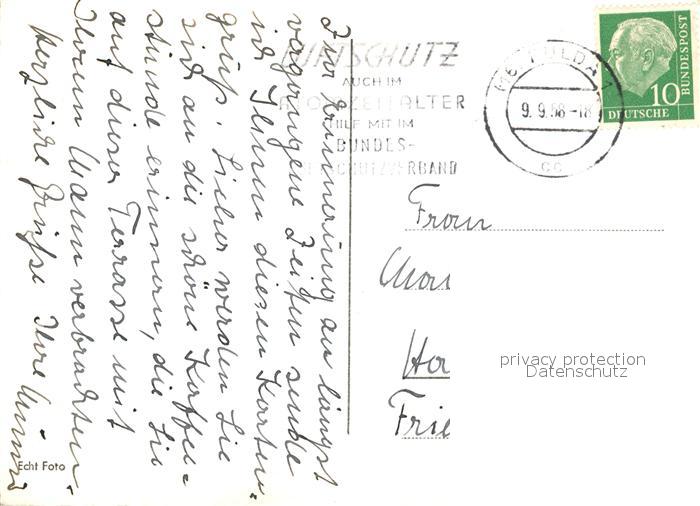 Zur Erinnerung an längst
vergangene Zeiten sende
ich Ihnen diesen Karten-
gruß. Sicher werden Sie
sich an die schöne Kaffee-
stunde erinnern, die Sie
auf dieser Terrasse mit
Ihrem Mann verbrachten.
Herzliche Grüße Ihre
Echt Foto
LUFTSCHUTZ
AUCH IM
ATOMZEITALTER
HILF MIT IM
BUNDES-
LUFTSCHUTZVERBAND
FULDA 1
9.9.58-18
cc
10
DEUTSCHE
BUNDESPOST
Frau
Ha
Frie
privacy protection
Datenschutz